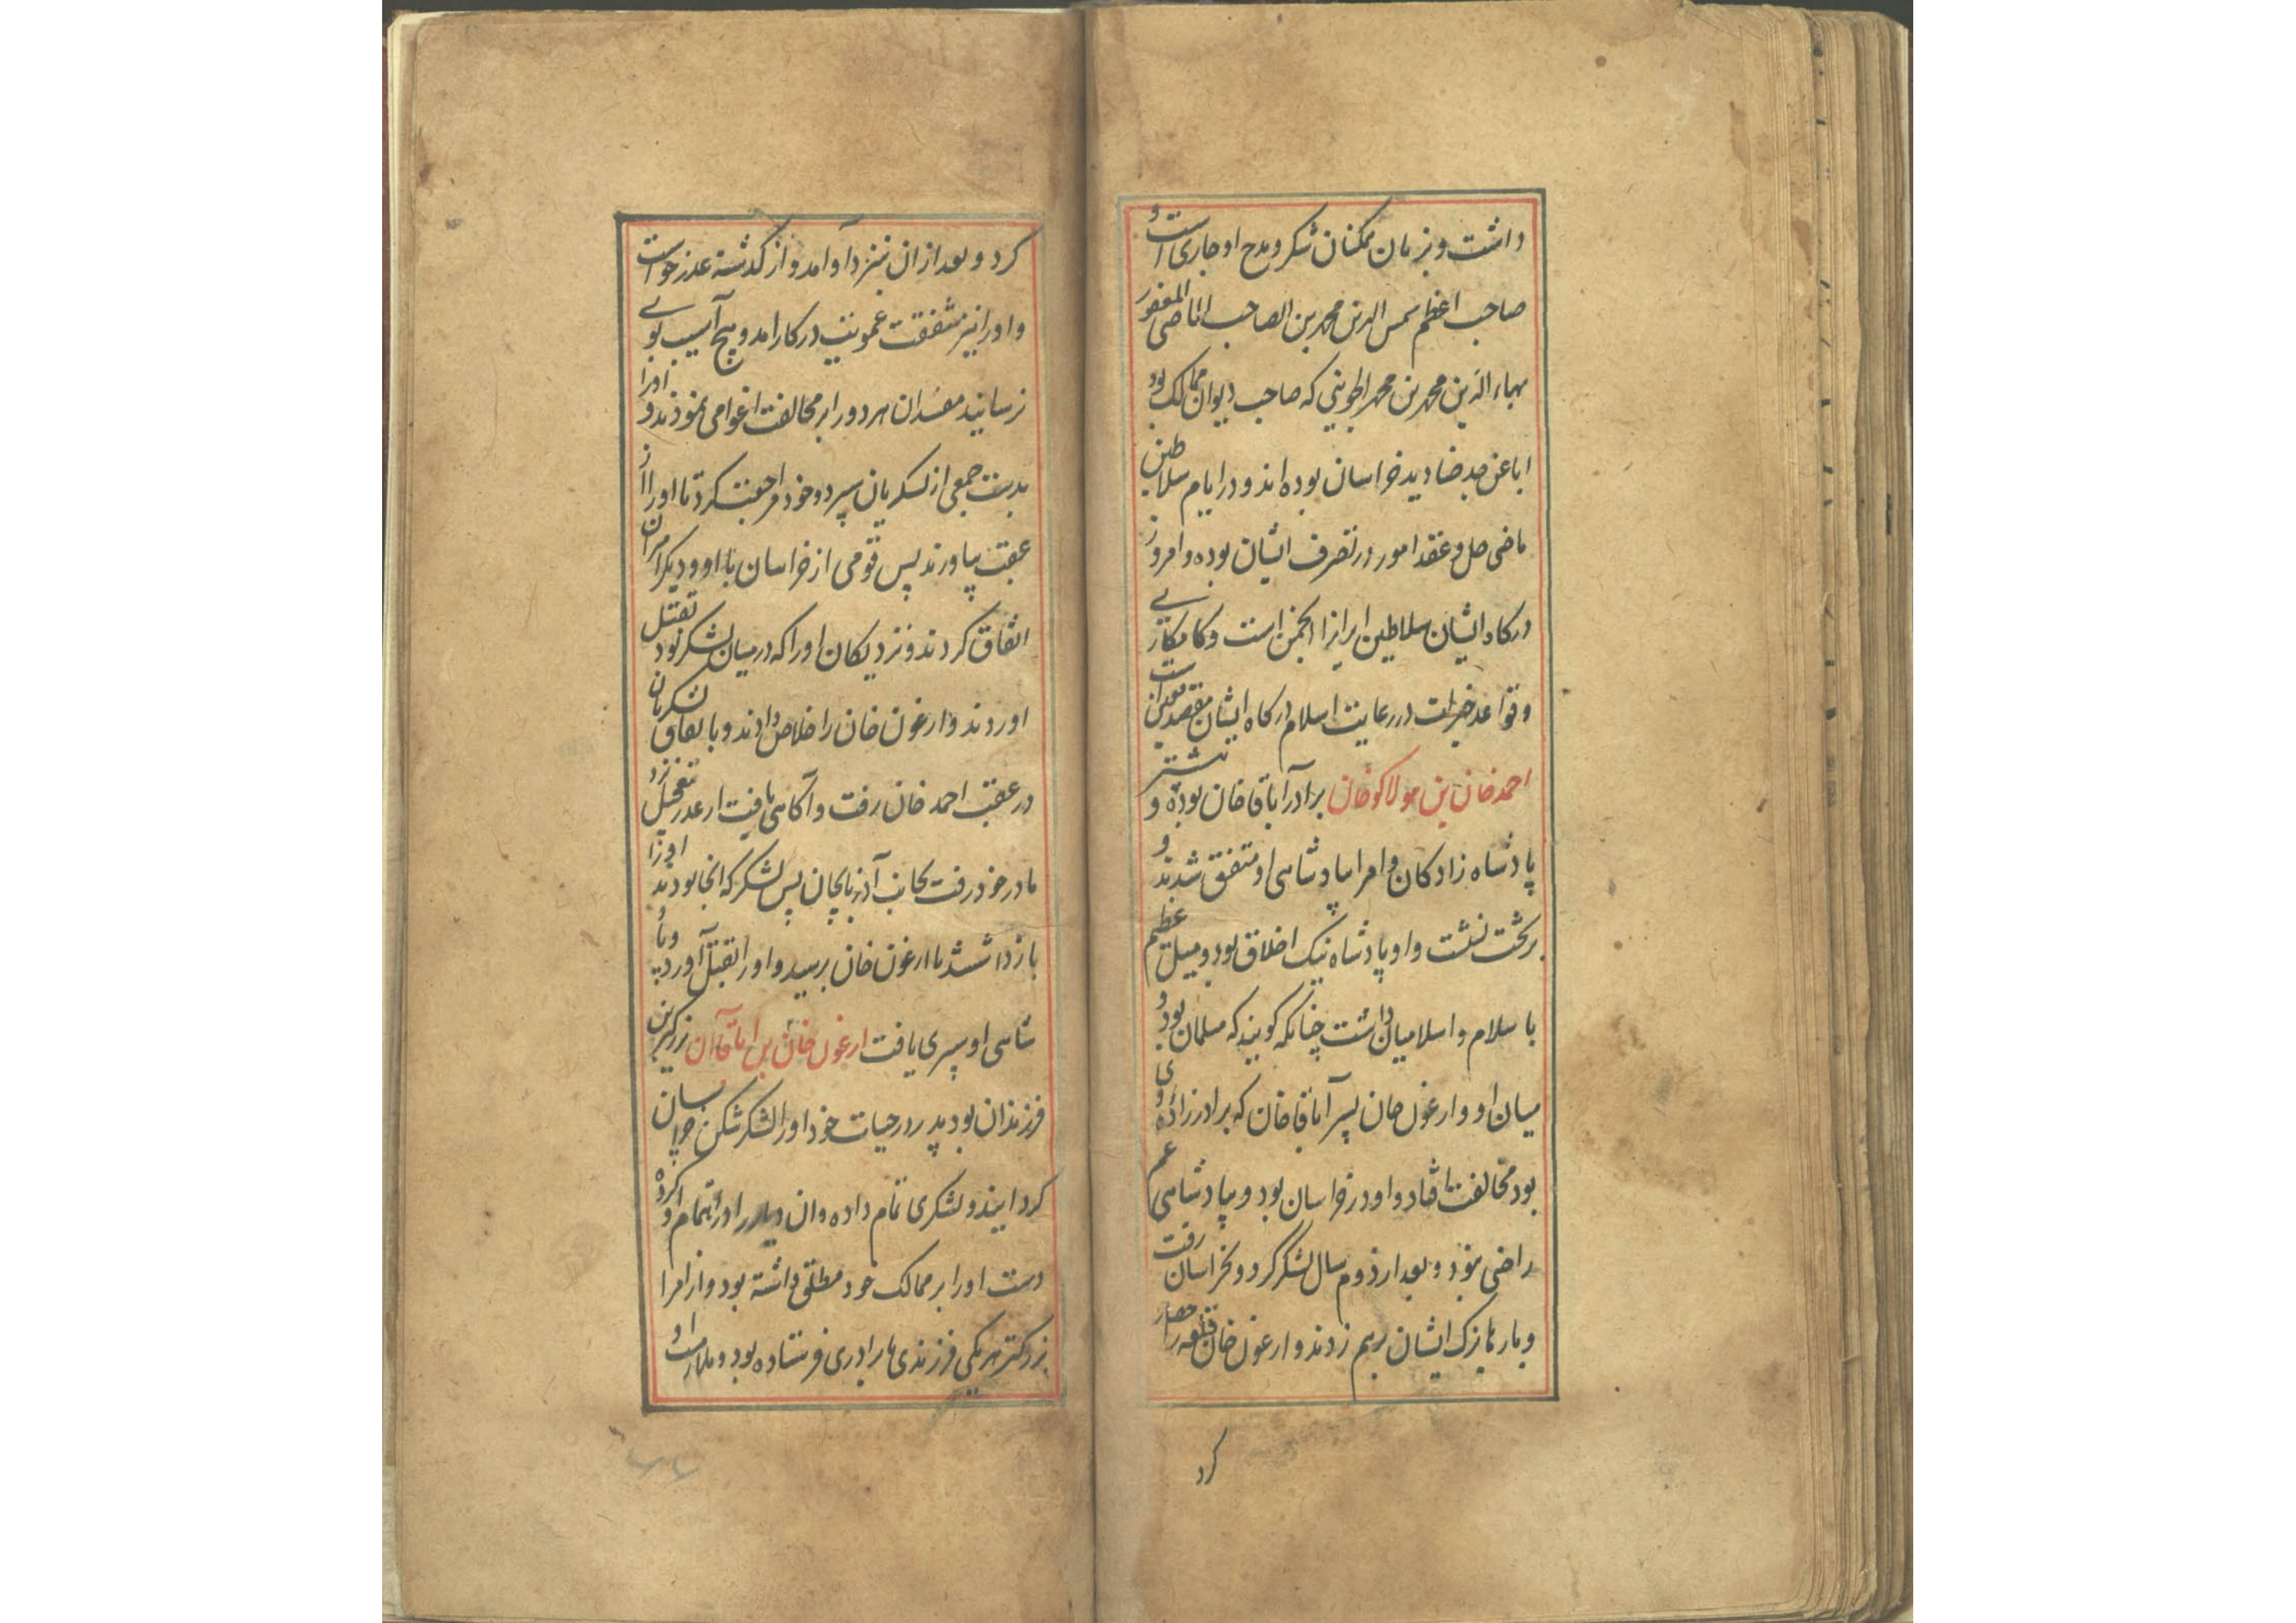 داشت و بزبان همکنان شکر و مدح او جاری است و
صاحب اعظم شمس الدین محمد بن الصاحب الماضی المغفور
بهاء الدین محمد بن محمد الجوینی که صاحب دیوان ممالک بود
ابا عن جد صنادید خراسان بوده اند و در ایام سلاطین
ماضی حل و عقد امور در تصرف ایشان بوده و امروز
درکاه ایشان سلاطین ایرانرا انجمن است و
و قواعد خیرات در رعایت اسلام درکاه ایشان
احمد خان بن هولاکو خان برادر آباقا خان بوده و بیشتر
پادشاه زادکان و امرا بپادشاهی او متفق شدند و
برتخت نشست و او پادشاه نیک اخلاق بود و میل عظیم
باسلام و اسلامیان داشت چنانکه کویند که مسلمان بود و
میان او و ارغون خان پسر آباقا خان که برادرزاده وی
بود مخالفت افتاد و او در خراسان بود و بپادشاهی عم
راضی نبود و بعد از دوم سال لشکر کرد و بخراسان رفت
و بارها یزک ایشان برهم زدند و ارغون خان قلعه را حصار
کرد
کرد و بعد از ان بنزد او آمد و از کذشته عذر خواست
و او را نیز شفقت عمویت در کار امد و هیچ آسیب بوی
نرسانید مفسدان هر دو را بر مخالفت اغوا می نمودند و اورا
بدست جمعی از لشکریان سپرد و خود مراجعت کرد تا اورا از
عقب بیاورند پس قومی از خراسان با او و دیکر امیران
اتفاق کردند و نزدیکان او را که در میان لشکر بود بقتل
اوردند و ارغون خان را خلاص دادند و باتفاق لشکریان
در عقب احمد خان رفت و آکاهی یافت از غدر بتعجیل نزد
مادر خود رفت بجانب آذربایجان پس لشکر که انجا بودند اورا
بازداشتند تا ارغون خان برسید و اورا بقتل آورد و پاد
شاهی او سپری یافت ارغون خان بن اباقا آن بزرکترین
فرزندان بود پدر در حیات خود اورا لشکرشکن خراسان
کردانیده و لشکری تمام داده و ان دیار را در اهتمام او کرده
دست اورا بر ممالک خود مطلق داشته بود و از امرا
بزرکتر هر یکی فرزندی یا برادری فرستاده بود و ملازمت او